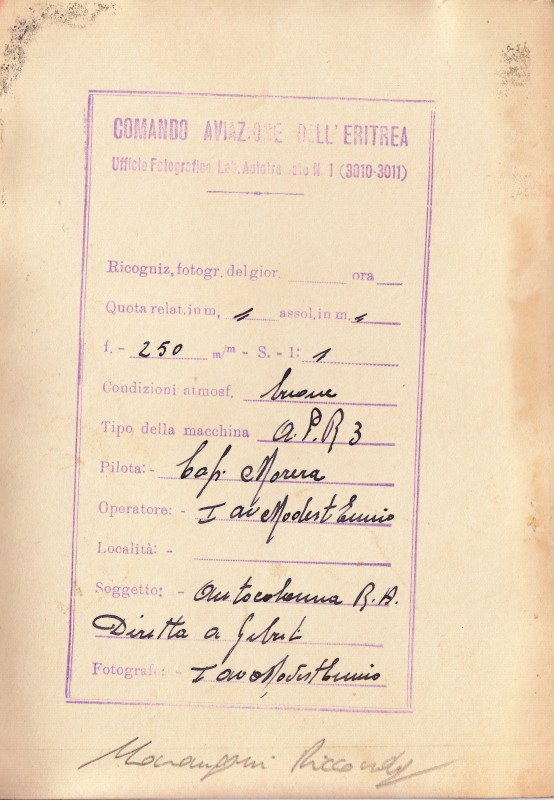 COMANDO AVIAZIONE DELL' ERITREA
Ufficio Fotografico Lab. Autotrainato N. 1 (3010-3011)
Ricogniz. fotogr. del gior. ora
Quota relat. in m. 1 assol. in m. 1
f. - 250 m/m - S. - 1: 1
Condizioni atmosf. buone
Tipo della macchina A.P.R 3
Pilota: - Cap. Morera
Operatore: - I av Modest Ennio
Località: -
Soggetto: - Autocolonna R.A.
Diretta a
Fotografo: - I av Modest Ennio
Marangoni Riccardo